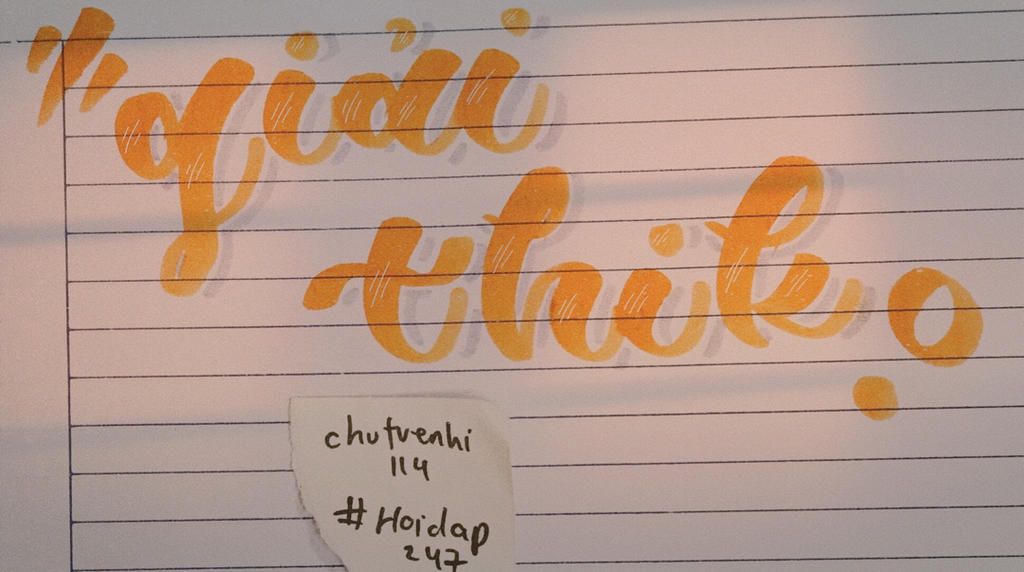 giải
thik
chutuenhi
114
#Hoidap
247